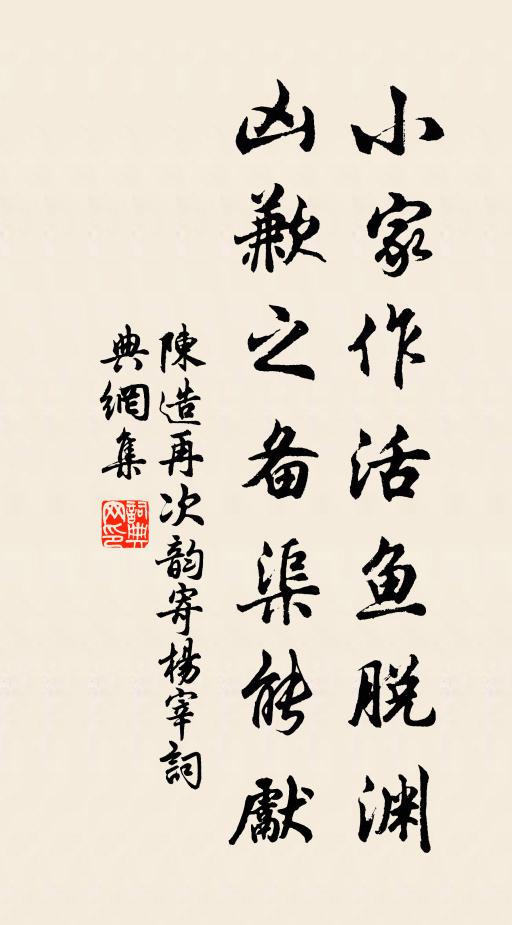 小家作活鱼脱渊
凶歉之备渠能献
陳造再次韵寄楊宰詞
典網集
詞典
网印